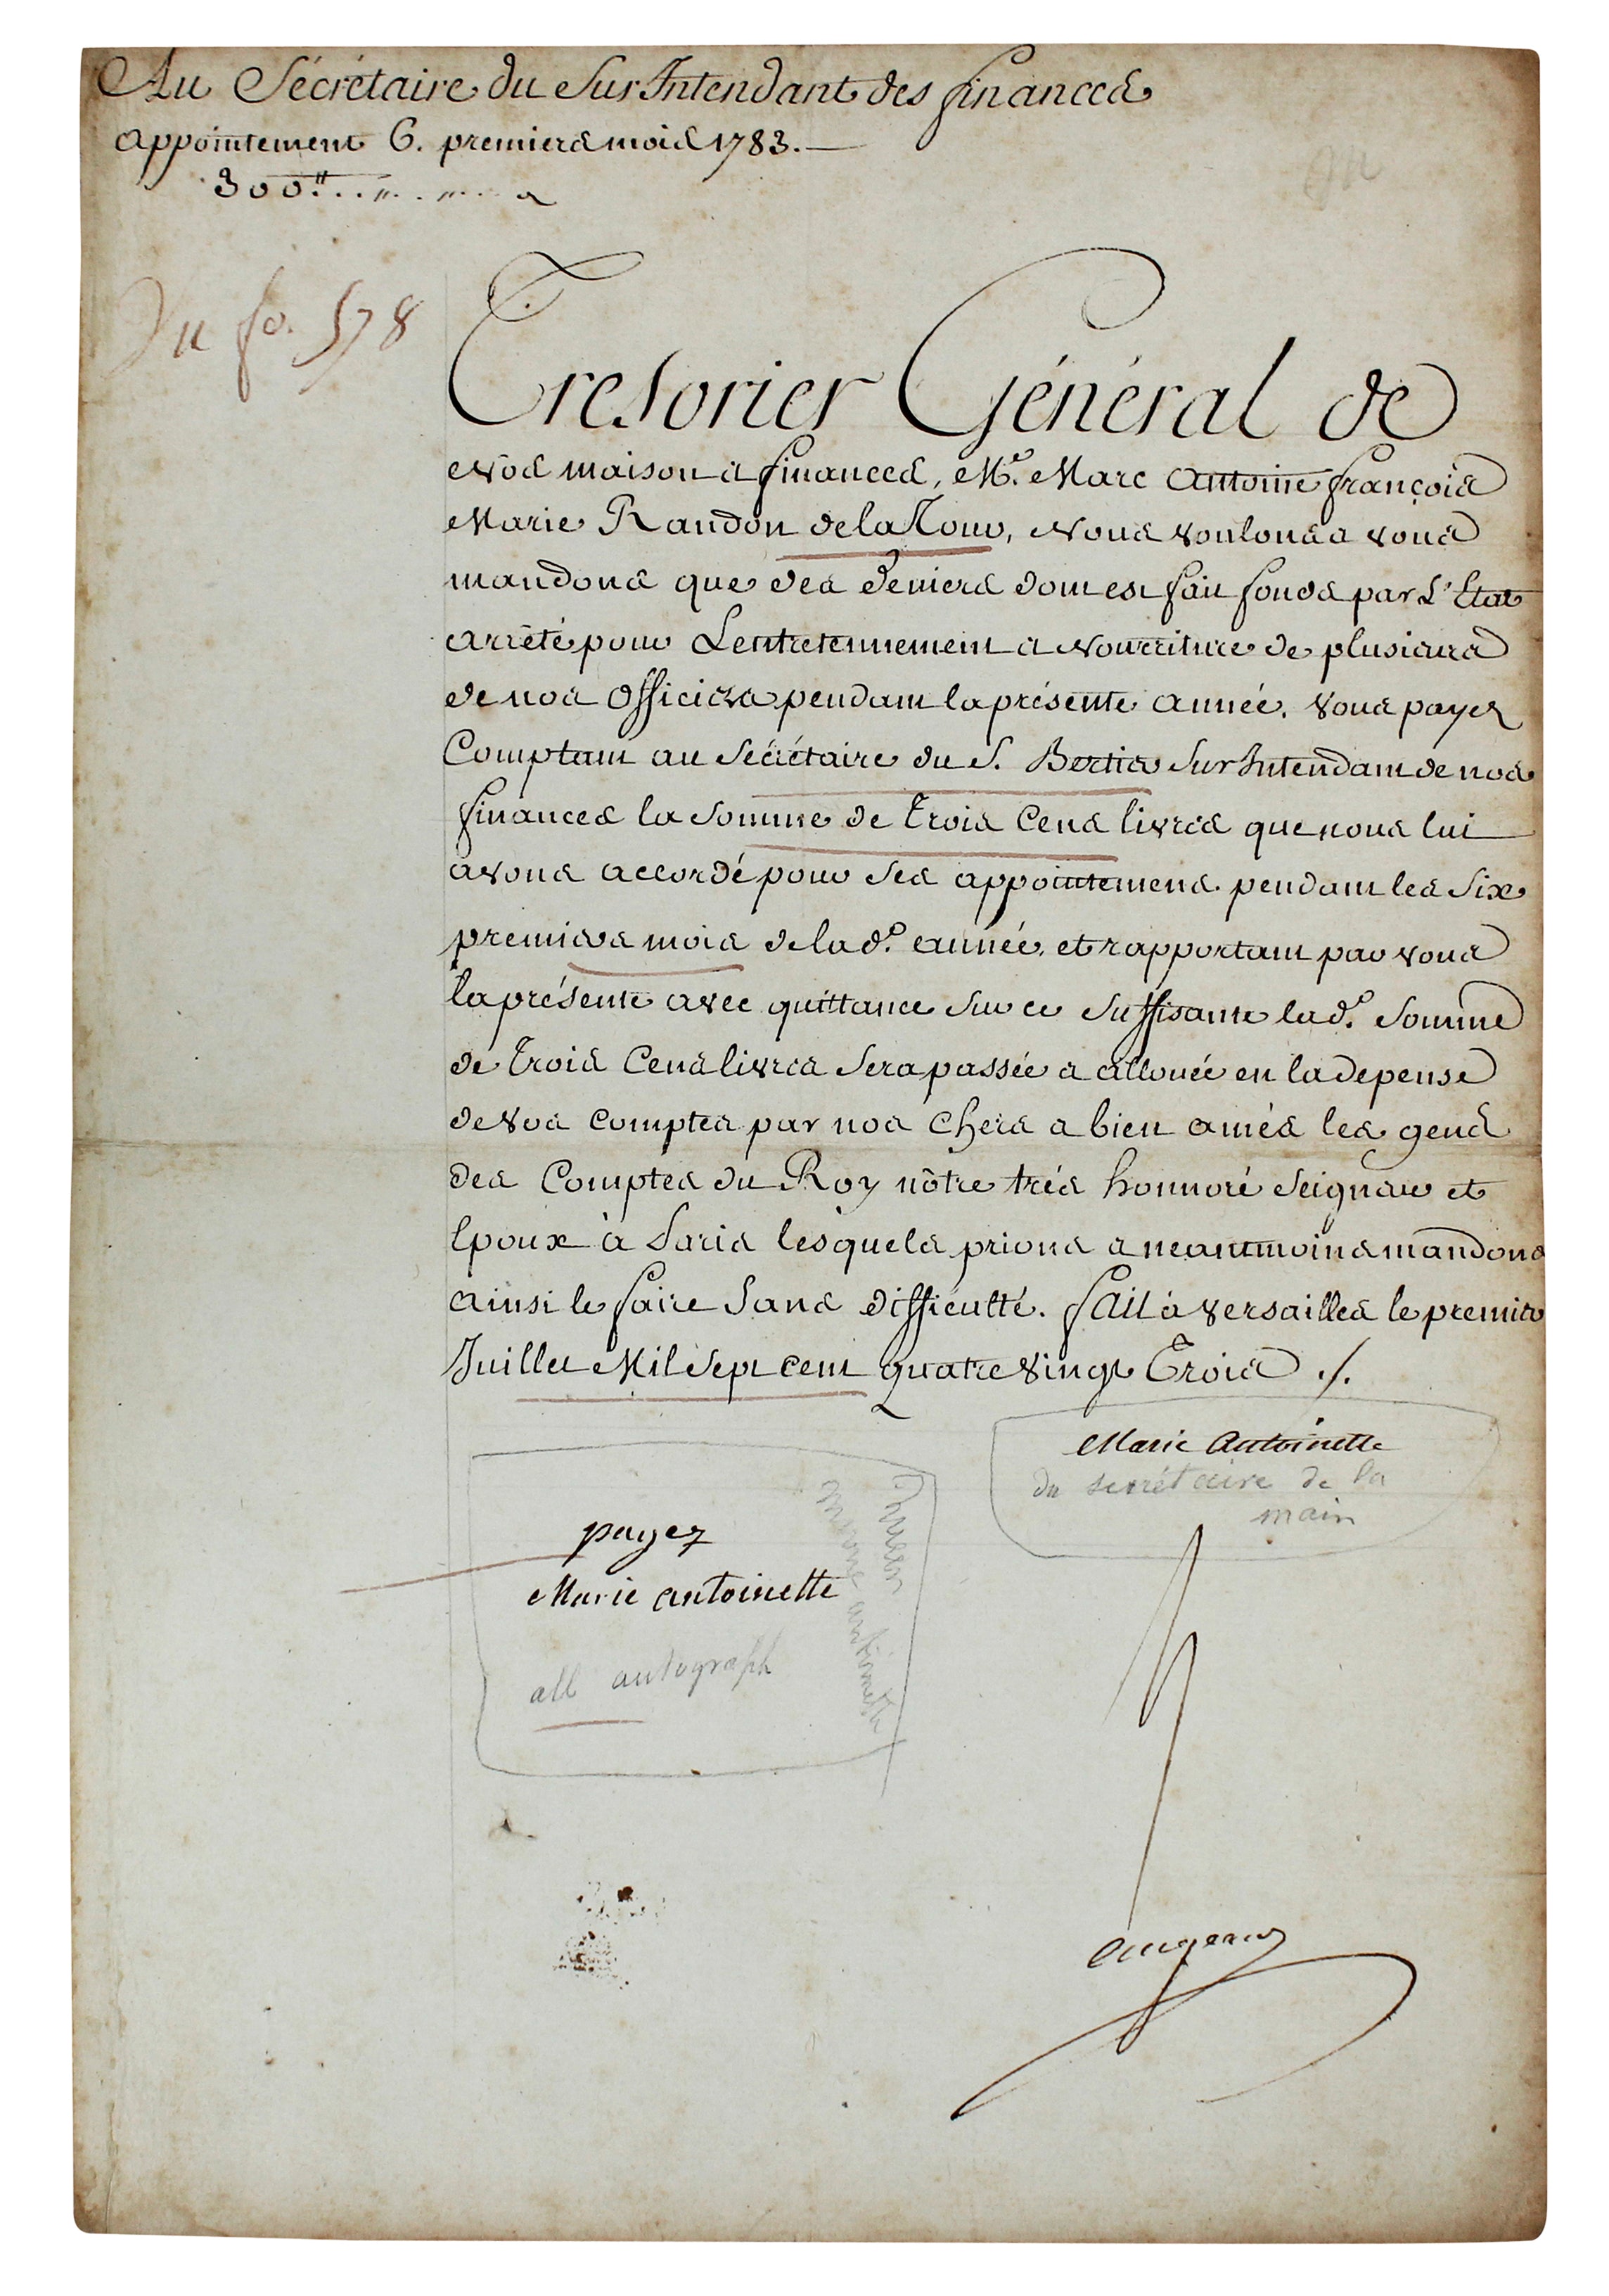 Au Sécrétaire du Sur Intendant des finances
appointement 6. premiers mois 1783.
300ᵗᵗ
Vu fo. 578
Tresorier Général de
Nos maison et finances, Mᵉ. Marc Antoine françois
Marie Randon de la Tour, Nous voulons et vous
mandons que des deniers dont est fait fonds par L'Etat
arrêté pour Lentretennement et Nourriture de plusieurs
de nos officiers pendant la présente année. vous payez
Comptant au Sécrétaire du S. Bertier Sur Intendant de nos
finances la Somme de Trois Cens livres que nous lui
avons accordé pour Ses appointemens pendant les Six
premiers mois de lad.ᵉ année, et rapportant par vous
la présente avec quittance Sur ce Suffisante lad.ᵉ Somme
de Trois Cens livres Sera passée et allouée en la depense
de vos comptes par nos chers et bien amés les gens
des Comptes du Roy nôtre très honnoré Seigneur et
Epoux à Paris lesquels prions et neantmoins mandons
ainsi le faire Sans difficulté. fait à versailles le premier
Juillet Mil Sept cent quatre vingt Trois ./.
Marie Antoinette
du secrétaire de la
main
payez
Marie antoinette
all autograph
Queen
Marie antoinette
augeard